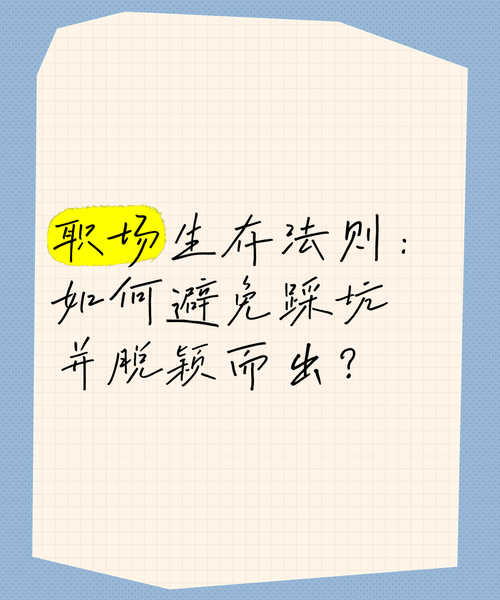 职场生存法则：
如何避免踩坑
并脱颖而出？